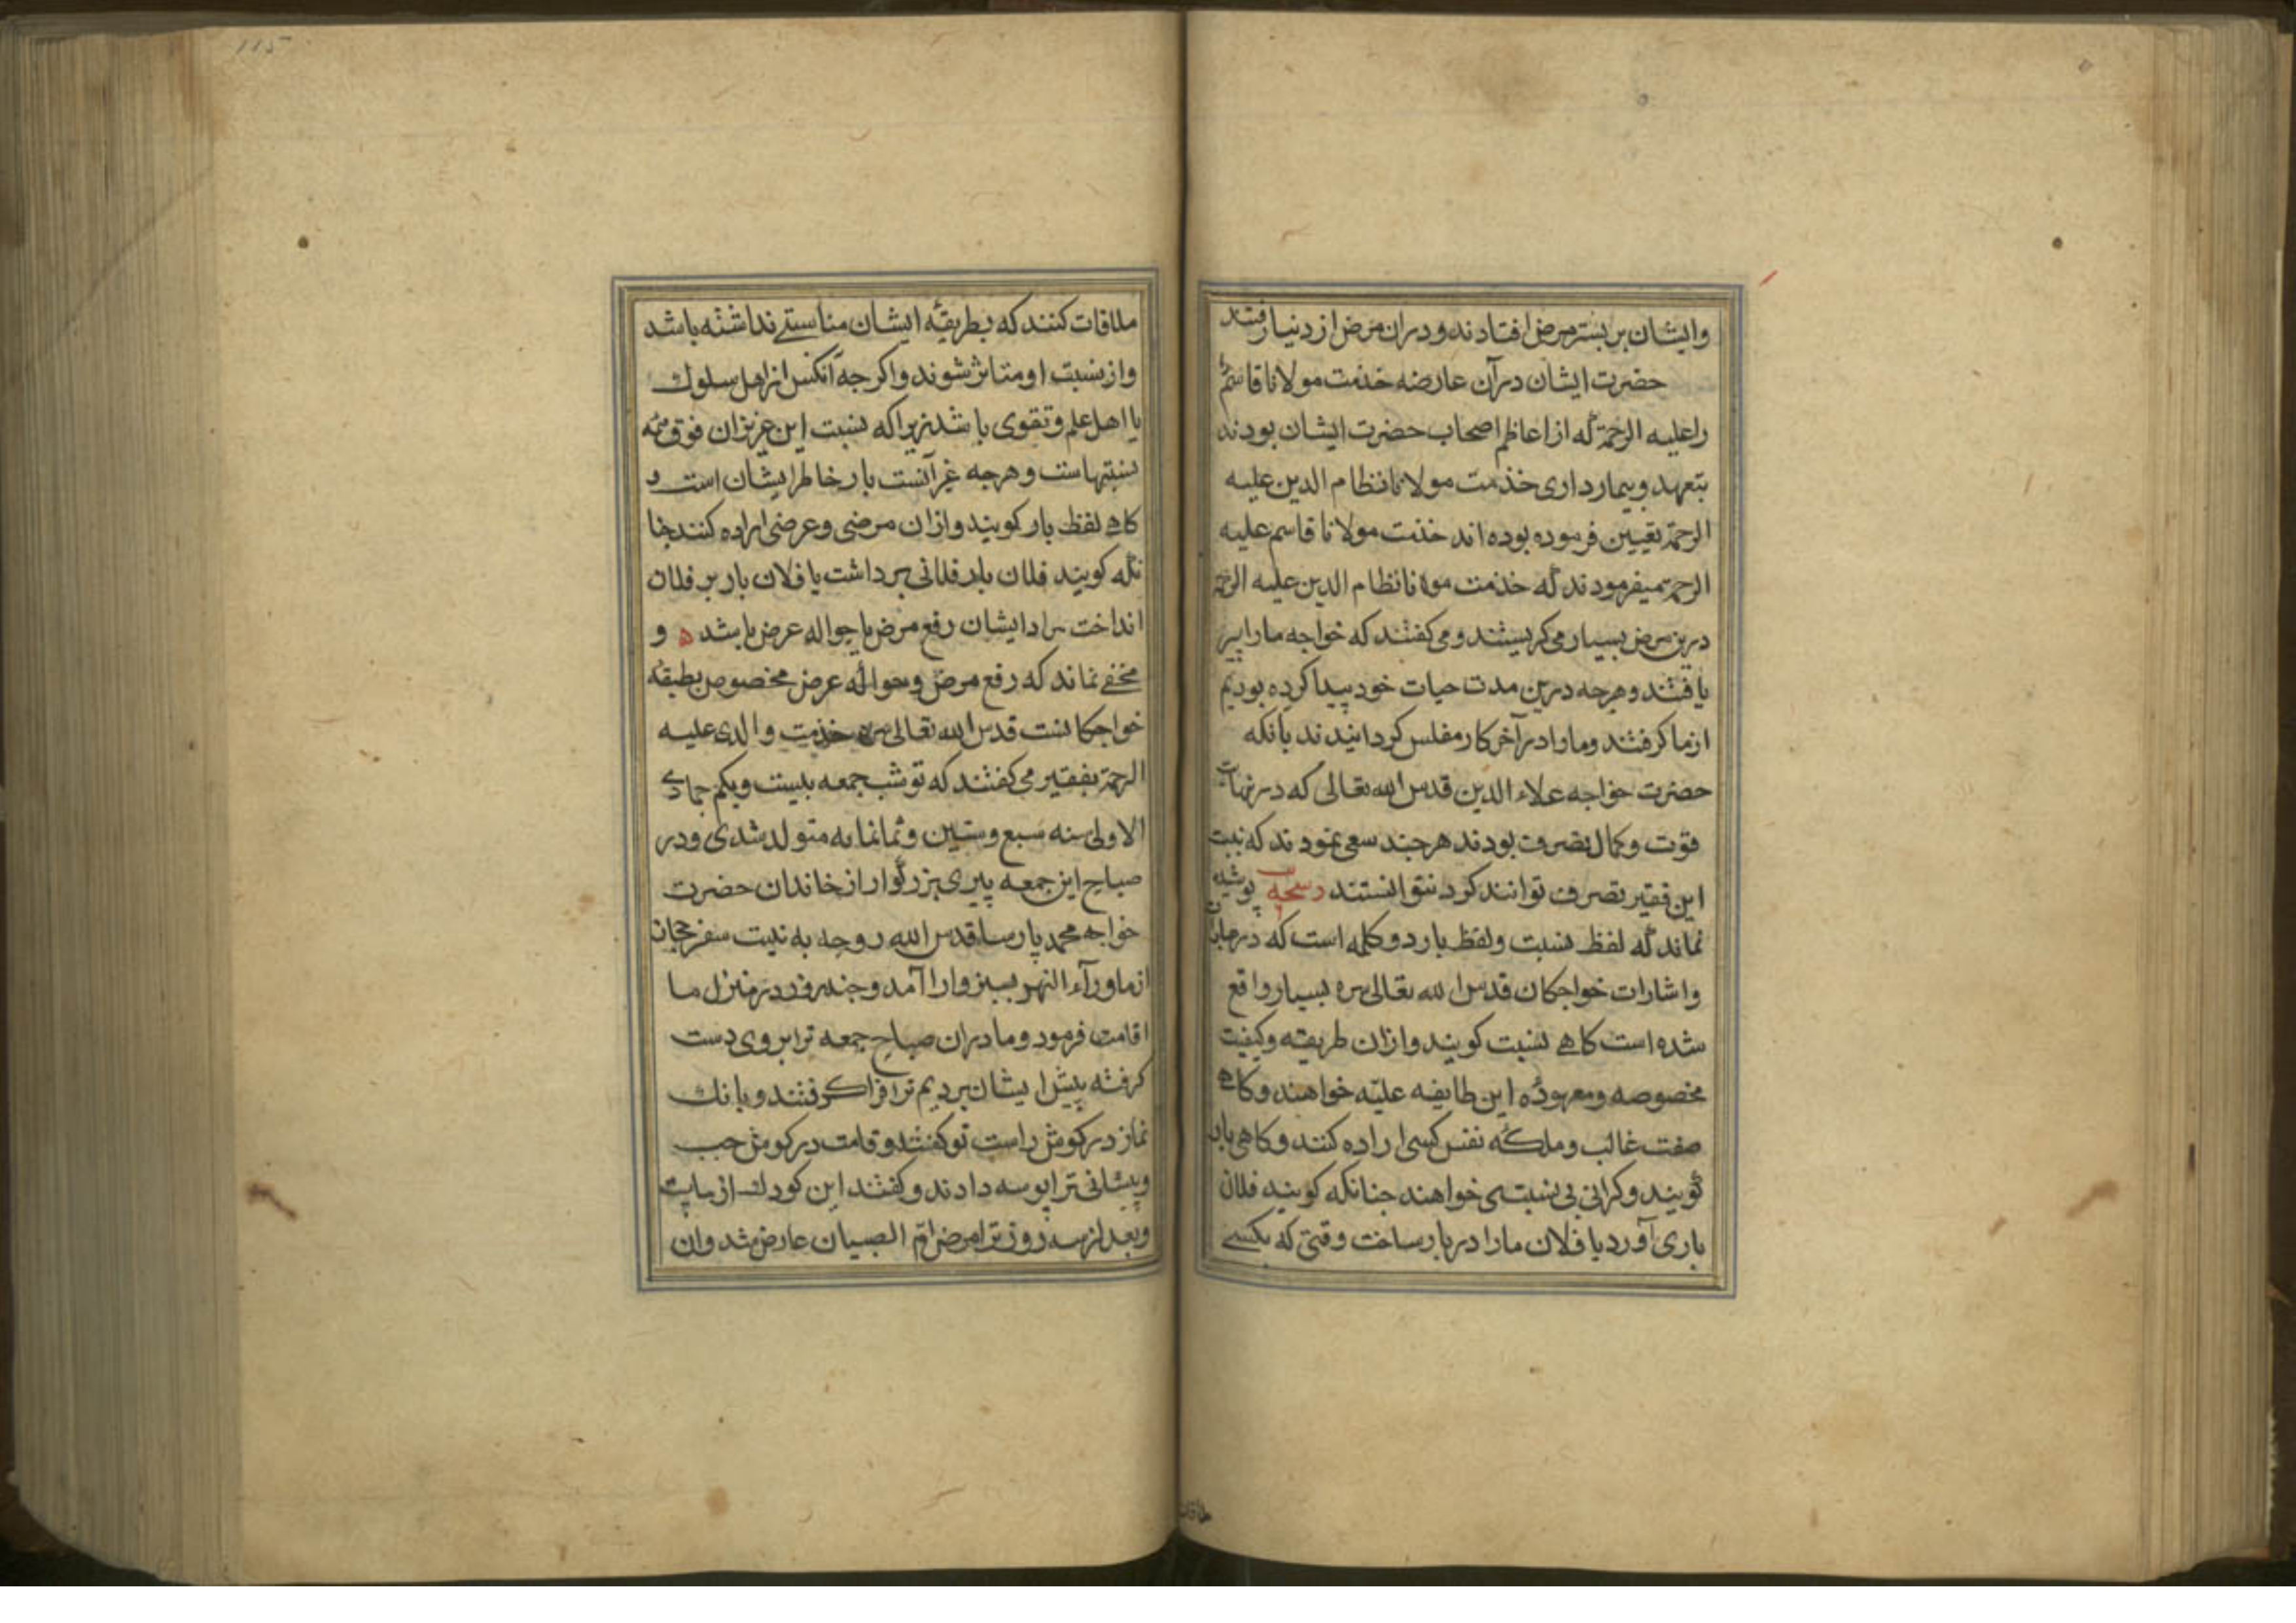 وایشان بر بستر مرض افتادند ودران مرض از دنیا رفتند
حضرت ایشان درآن عارضه خذمت مولانا قاسم
راعلیه الرحمة که از اعاظم اصحاب حضرت ایشان بودند
بتعهد وبیمار داری خذمت مولانا نظام الدین علیه
الرحمة تعیین فرموده بوده اند خذمت مولانا قاسم علیه
الرحمة میفرمودند که خذمت مولانا نظام الدین علیه الرحمة
درین مرض بسیار می کریستند و می کفتند که خواجه مارا پیر
یافتند وهرجه درین مدت حیات خود پیدا کرده بودیم
ازما کرفتند ومارا درآخر کار مفلس کردانیدند بانکه
حضرت خواجه علاء الدین قدس الله تعالی که در نهایت
قوت وکمال تصرف بودند هرجند سعی نمودند که نسبت
این فقیر تصرف توانند کرد نتوانستند رشحه پوشیده
نماند که لفظ نسبت ولفظ بار دو کلمه است که در
واشارات خواجکان قدس الله تعالی سره بسیار واقع
شده است کاهی نسبت کویند وازان طریقه وکیفیت
مخصوصه ومعهوده این طایفه علیّه خواهند وکاهی
صفت غالب وملکه نفس کسی اراده کنند وکاهی بار
کویند وکرانی بی نسبتی خواهند جنانکه کویند فلان
باری آورد یا فلان مارا دربار ساخت وقتی که بکسی
ملاقات
115
ملاقات کنند که بطریقه ایشان مناسبتی نداشته باشد
واز نسبت او متاثر شوند واکرجه آنکس از اهل سلوک
یا اهل علم وتقوی باشد زیراکه نسبت این عزیزان فوق همه
نسبتهاست وهرجه غیر آنست بار خاطر ایشان است و
کاهی لفظ بار کویند وازان مرضی وعرضی اراده کنند جنا
نکه کویند فلان بار فلانی برداشت یا فلان بار بر فلان
انداخت مراد ایشان رفع مرض یا حواله عرض باشد ه و
مخفی نماند که رفع مرض وحواله عرض مخصوص بطبقه
خواجکانست قدس الله تعالی سره خذمت والدی علیه
الرحمة بفقیر می کفتند که تو شب جمعه بیست ویکم جمادی
الاولی سنه سبع وستین وثمانمایه متولد شدی ودر
صباح این جمعه پیری بزرکوار از خاندان حضرت
خواجه محمد پارسا قدس الله روحه به نیت سفر حجاز
از ماورآء النهر بسبزوار آمد وجند روز در منزل ما
اقامت فرمود وما دران صباح جمعه ترا بر وی دست
کرفته پیش ایشان بردیم ترا فرا کرفتند وبانک
نماز در کوش راست تو کفتند وقامت در کوش جب
وپیشانی ترا بوسه دادند وکفتند این کودک از ماست
وبعد از سه روز ترا مرض امّ الصبیان عارض شد وان